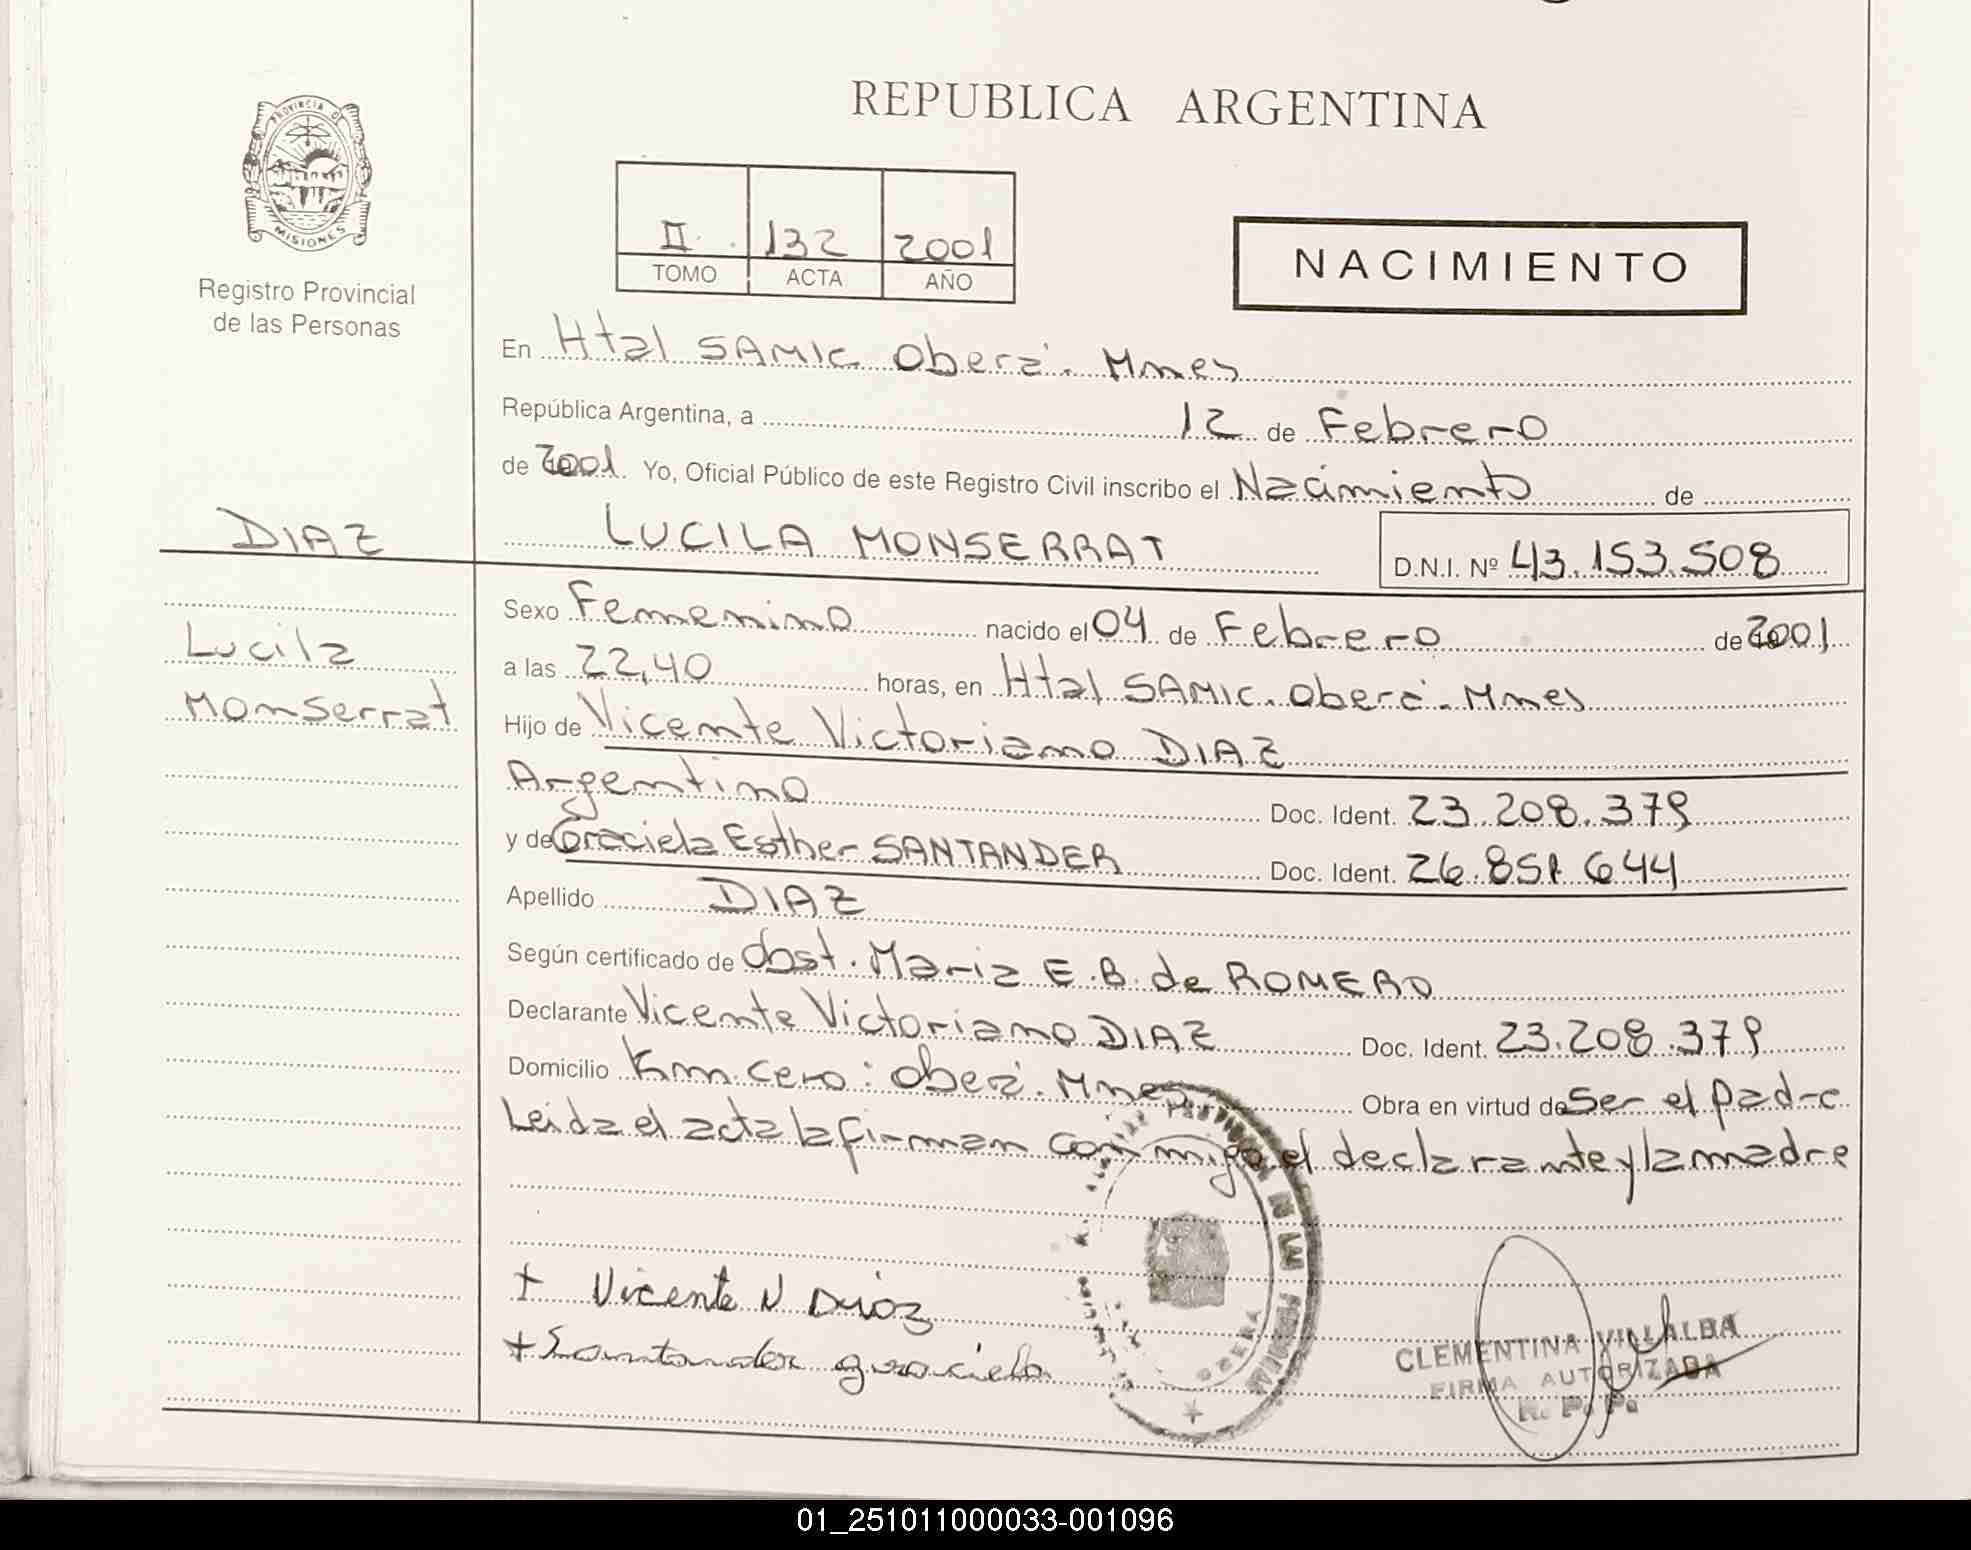 REPUBLICA ARGENTINA
PROVINCIA DE
MISIONES
Registro Provincial
de las Personas
II 132 2001
TOMO ACTA AÑO
NACIMIENTO
En Htal SAMIC. Oberá. Mnes
República Argentina, a 12 de Febrero
de 2001. Yo, Oficial Público de este Registro Civil inscribo el Nacimiento de
DIAZ
LUCILA MONSERRAT D.N.I. Nº 43.153.508
Lucila
Monserrat
Sexo Femenino nacido el 04 de Febrero de 2001
a las 22,40 horas, en Htal SAMIC. Oberá. Mnes
Hijo de Vicente Victoriano DIAZ
Argentino Doc. Ident. 23.208.379
y de Graciela Esther SANTANDER Doc. Ident. 26.851.644
Apellido DIAZ
Según certificado de Obst. Maria E.B. de ROMERO
Declarante Vicente Victoriano DIAZ Doc. Ident. 23.208.379
Domicilio Km. Cero: Oberá. Mnes Obra en virtud de Ser el padre
Leida el acta la firman conmigo el declarante y la madre
+ Vicente V Diaz
+ Santander graciela
CLEMENTINA VILLALBA
FIRMA AUTORIZADA
R. P. P.
01_251011000033-001096